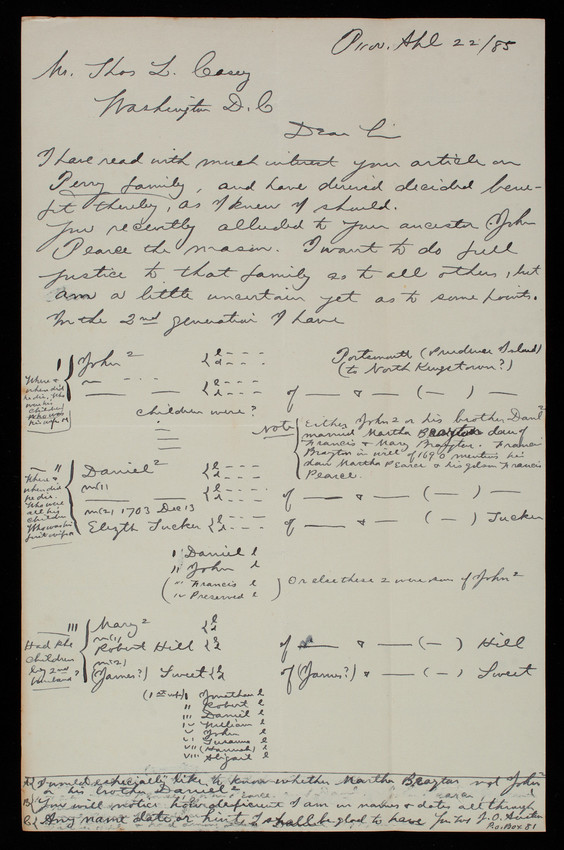 Prov. Apl 22/85
Mr. Thos L. Casey
Washington D.C
Dear Sir
I have read with much interest your article on
Perry family, and have derived decided bene-
fit thereby, as I knew I should.
You recently alluded to your ancestor John
Pearce the mason. I want to do full
justice to that family as to all others, but
am a little uncertain yet as to some points.
In the 2nd generation I have
I John 2 { b - - - d - - - Portsmouth (Prudence Island)
(to North Kingstown?)
Where &
when did
he die. Who
were his
children
Who was
his wife
— — — { b - - - d - - - of — & — ( — ) —
Children were?
Note { Either John 2 or his brother Danl 2
married Martha Brayton dau of
Francis & Mary Brayton. Francis
Brayton in will of 1690 mentions his
dau Martha Pearce & his gdson Francis
Pearce.
II Daniel 2 { b - - - d - - -
Where &
when did
he die.
Who were
all his
children
Who was his
first wife
m (1)
— — { b - - - d - - - of — & — ( — ) —
m (2) 1703 Dec 13
Elizth Tucker { b - - - d - - - of — & — ( — ) Tucker
I Daniel b
II John b
( III Francis b
IV Preserved b ) Or else these 2 were sons of John 2
III Mary 2 { b d
Had she
children
by 2nd
husband?
m (1)
Robert Hill { b d of — & — ( — ) Hill
m (2)
(James?) Sweet { b d of (James?) & — ( — ) Sweet
I Jonathan b
II Robert b
III Daniel b
IV William b
V John b
VI Susanna b
VII (Hannah) b
VIII Abigail b
A { I would especially like to know whether Martha Brayton md John 2
or his brother Daniel 2
B { You will notice how deficient I am in names & dates all through
C { Any name date or hint I shall be glad to have. Yrs Try J. O. Austin
P.O. Box 81